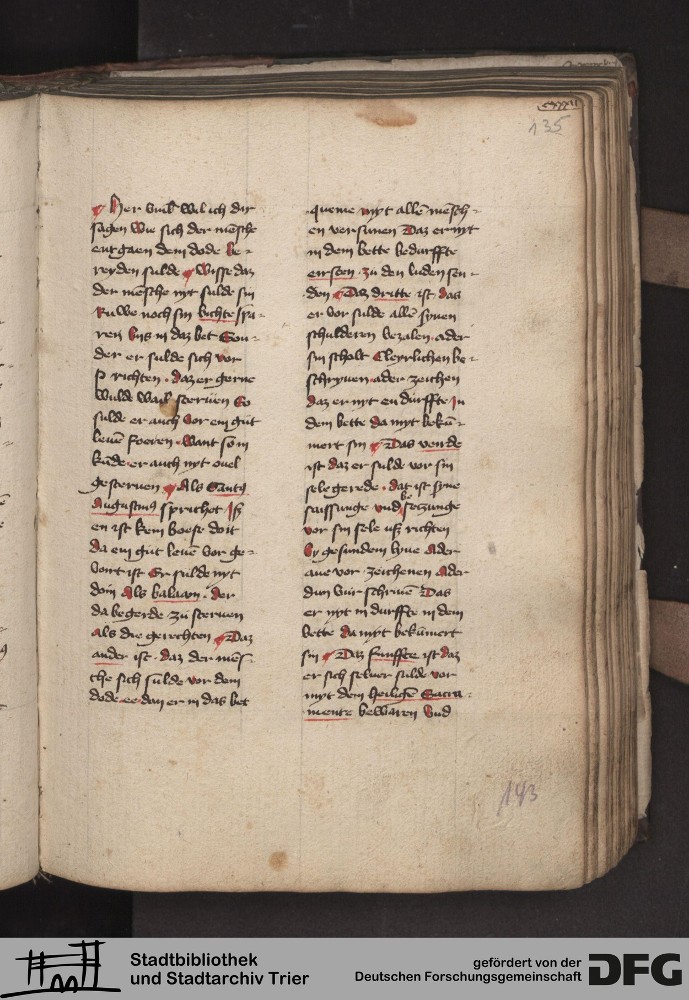 cxxxii
135
Her vmb wil ich dir
sagen Wie sich der mēsche
entgaen dem dode be-
reyden sulde Wisse daz
der mēsche nyt sulde sin
Ruwe noch sin bichte spa-
ren bys in daz bet Son-
der er sulde sich vor
richten . daz er gerne
wulde wail steruen So
sulde er auch vor ein gut
leuē foeren . want so in
kūde er auch nyt ouel
gesteruen Als Santus
Augustinus sprichet Iß
en ist kein boese doit
da ein gut leuē vor ge-
voirt ist Er sulde nyt
doin Als balaam . der
da begerde zu steruen
Als die gerechten Daz
ander ist . daz der mēs-
che sich sulde vor dem
dode ee dan er in das bet
queme myt allē mēsch-
en versunen Daz er nyt
in dem bette bedurffte
eirsten zu den luden sen-
den Daz dritte ist das
er vor sulde allē synen
schulderen bezalen . ader
sin scholt Cleyrlichen be-
schryuen . ader zeichen
daz er nyt en durffte In
dem bette da myt bekū-
mert sin Das vierde
ist daz er sulde vor sin
sele gerede . dat ist syne
saissunge vnd besetzunge
vor sin sele uß richten
By gesundem lyue Ader
aue vor zeichenen Ader
dun vur schriuē Das
er nyt in durffte in dem
bette da myt bekūmert
sin Daz funffte ist daz
er sich seluer sulde vor
myt dem heiligē Sacra-
mente bewaren Vnd
143
Stadtbibliothek
und Stadtarchiv Trier
gefördert von der
Deutschen Forschungsgemeinschaft
DFG